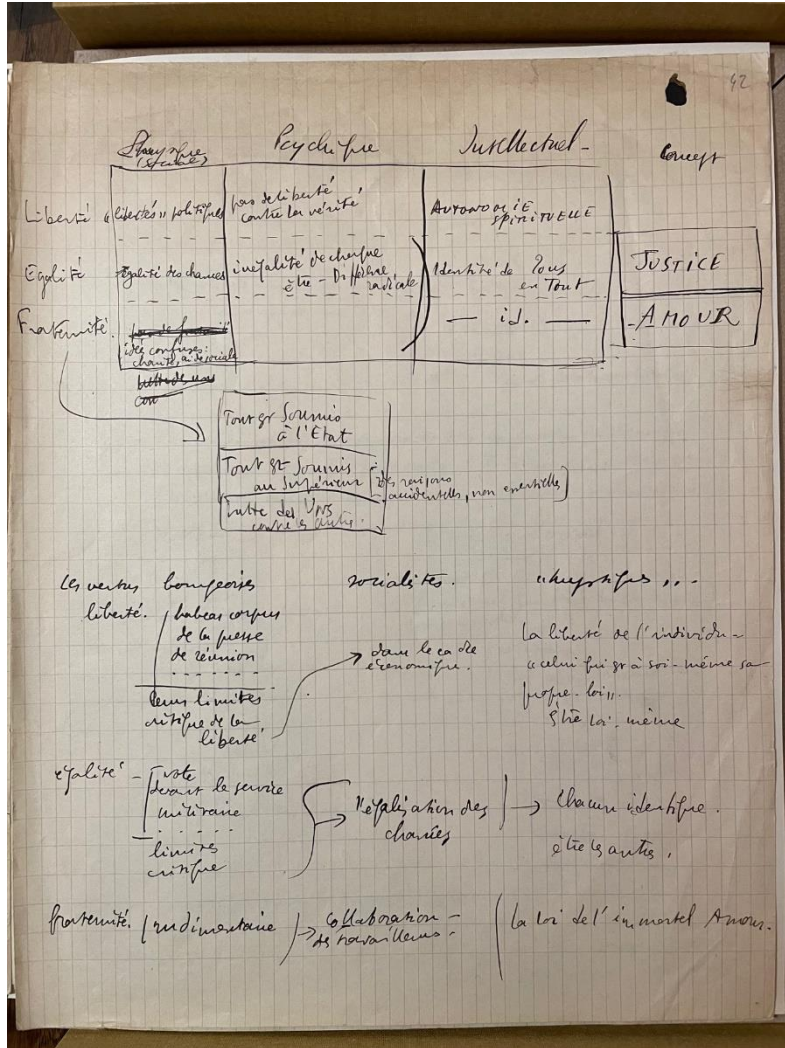 42
Physique Psychique Intellectuel - Concept
(sociale)
Liberté « libertés » politiques pas de liberté contre la vérité AUTONOMIE SPIRITUELLE
Egalité Egalité des chances inégalité de chaque être - Différence radicale Identité de Tous en Tout JUSTICE
Fraternité. — id. — AMOUR
idées confuses:
charité, aide sociale
lutte des uns
con
Tout gt Soumis
à l'Etat
Tout gt Soumis
au Supérieur [des raisons
accidentelles, non essentielles]
Lutte des Uns
contre les autres.
Les vertus bourgeoises socialistes. « mystiques »
liberté. habeas corpus
de la presse
de réunion
leurs limites
critique de la
liberté
dans le cadre
économique.
La liberté de l'individu -
« celui qui gt à soi-même sa
propre loi ».
Être loi-même
égalité - vote
devant le service
militaire
limites
critique
"égalisation des
chances
Chacun identique.
être les autres.
fraternité. (rudimentaire) collaboration -
des travailleurs - la loi de l'immortel Amour.